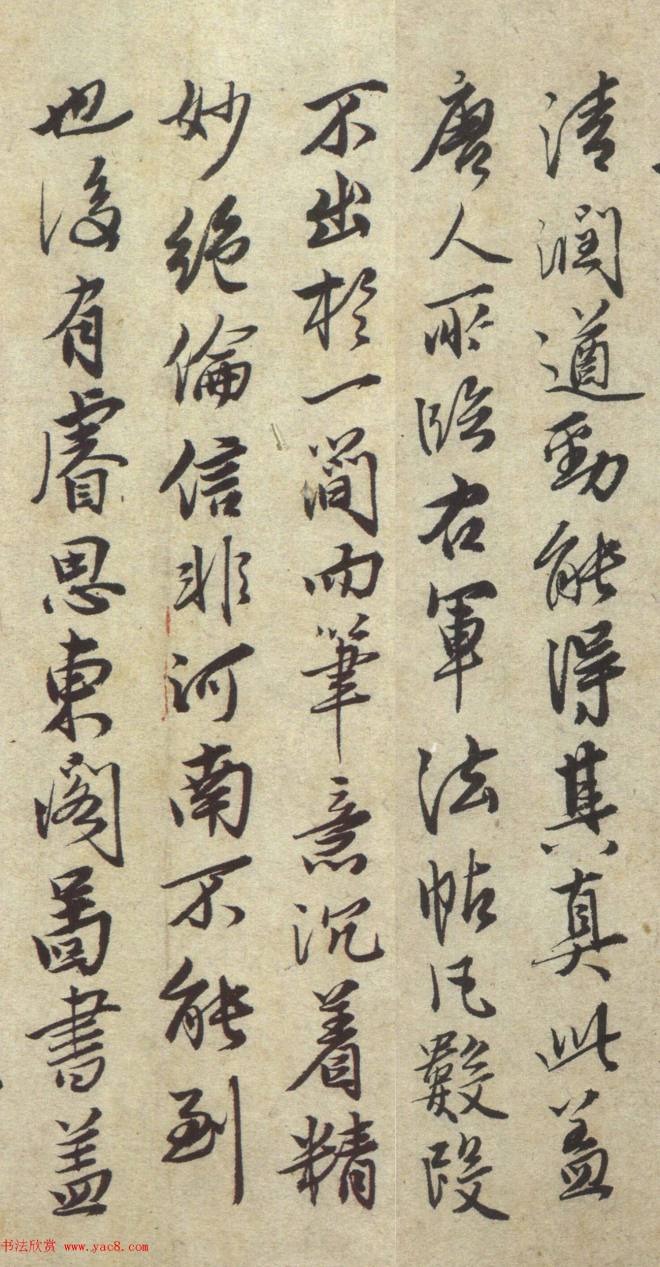 清潤遒勁能得其真此蓋
唐人所臨右軍法帖凡數段
不出於一簡而筆意沉着精
妙絕倫信非河南不能到
也後有睿思東閣圖書蓋
书法欣赏 www.yac8.com